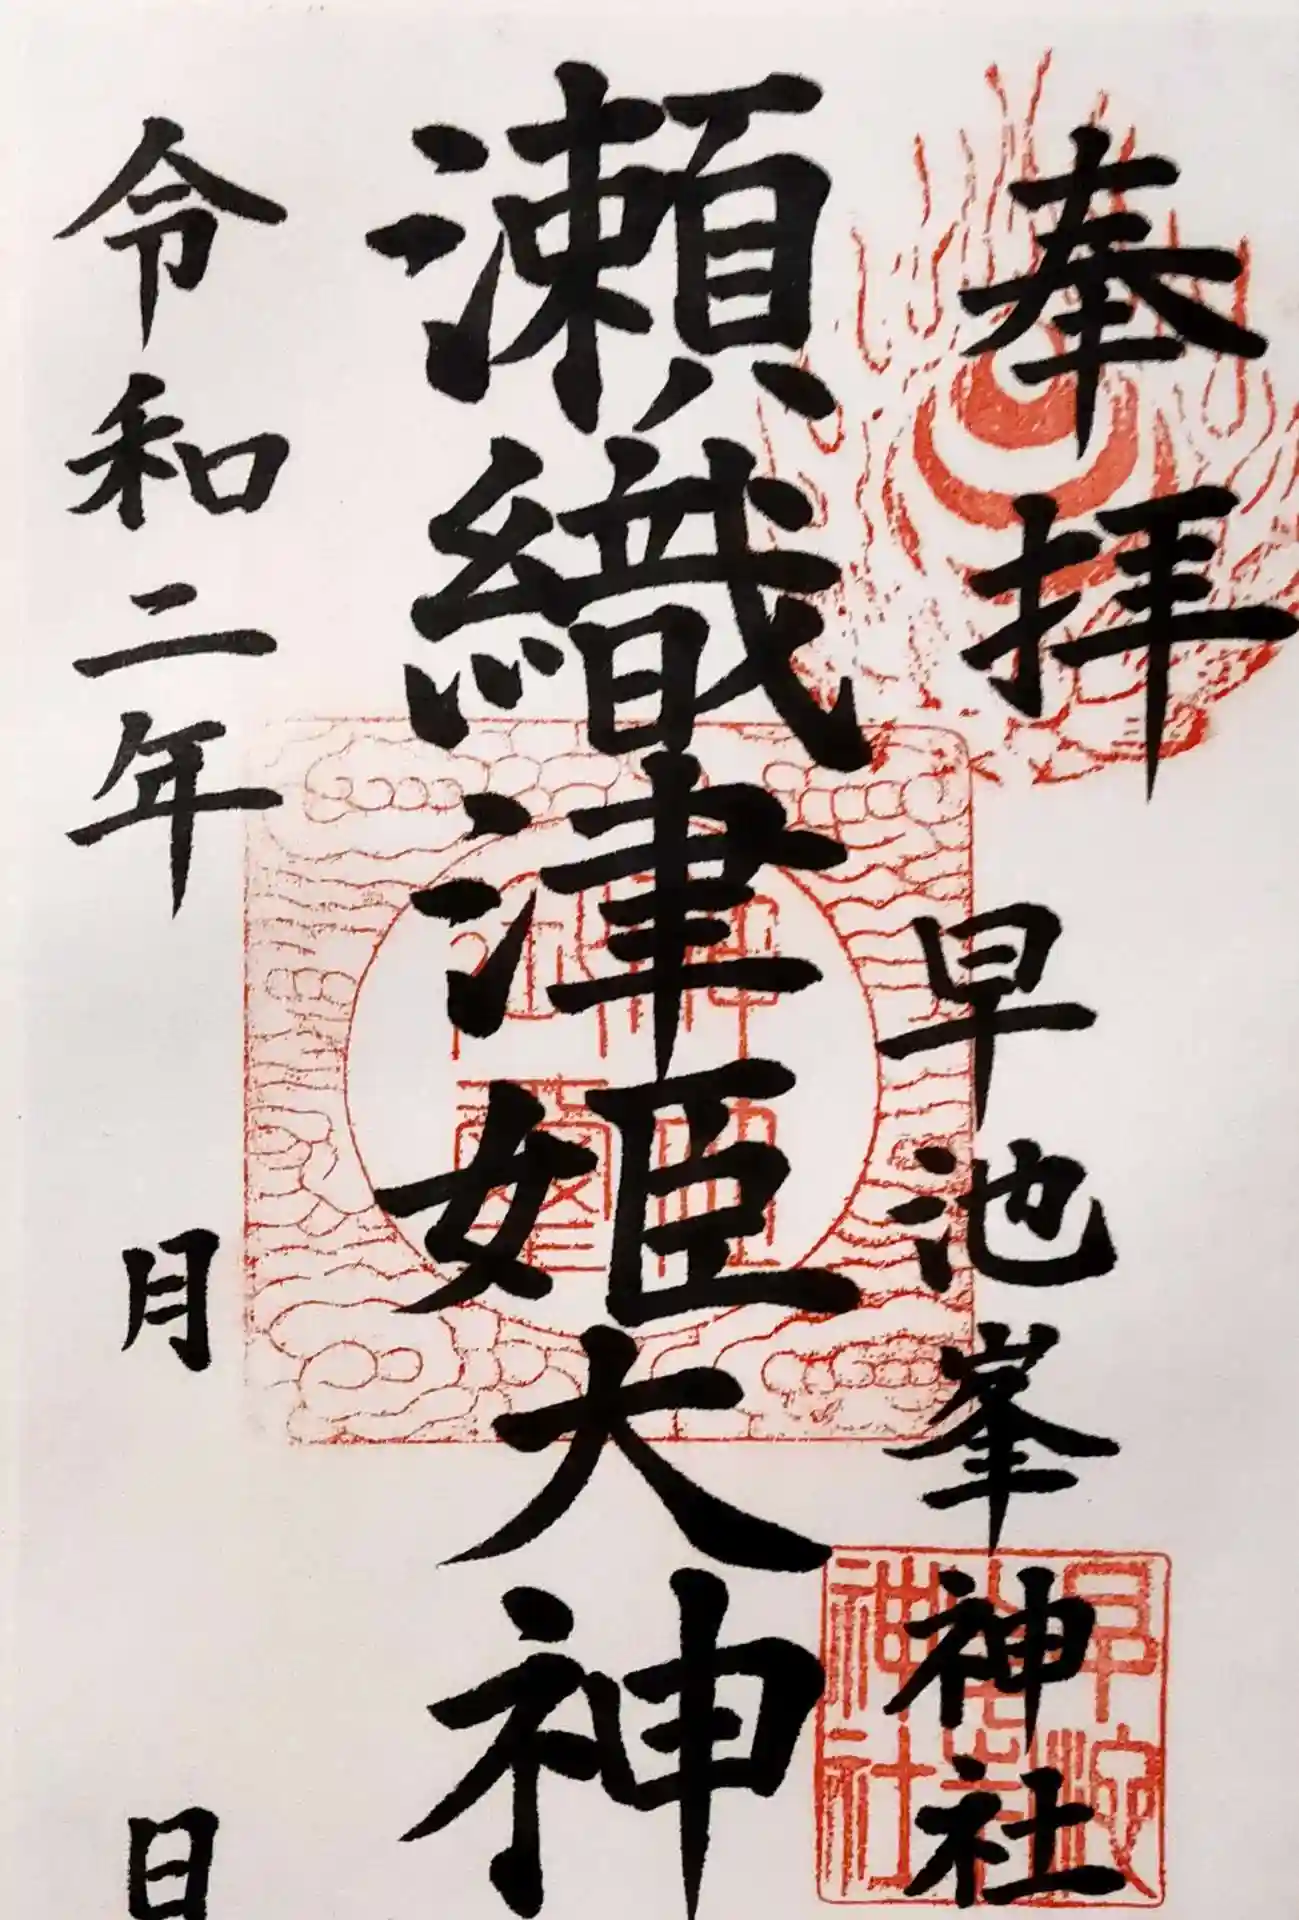 奉拝
早池峯神社
瀬織津姫大神
令和二年 月 日
早池峯神社